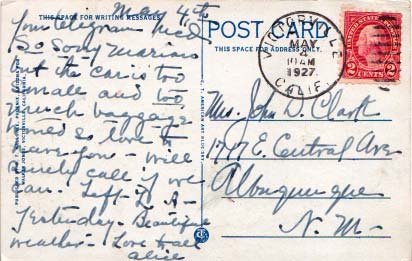 THIS SPACE FOR WRITING MESSAGES
May 4th
Your telegram rec'd
So Sorry Marian
but the car is too
small and too
much baggage
would so love to
have you - will
surely call if we
can. Left L. A.
yesterday - Beautiful
weather - Love to all
Alice
POST CARD
THIS SPACE FOR ADDRESS ONLY.
VICTORVILLE
MAY
4
10 AM
1927
CALIF.
UNITED STATES POSTAGE
2 CENTS 2
Mrs. John D. Clark
1717 E. Central Ave
Albuquerque
N. M.